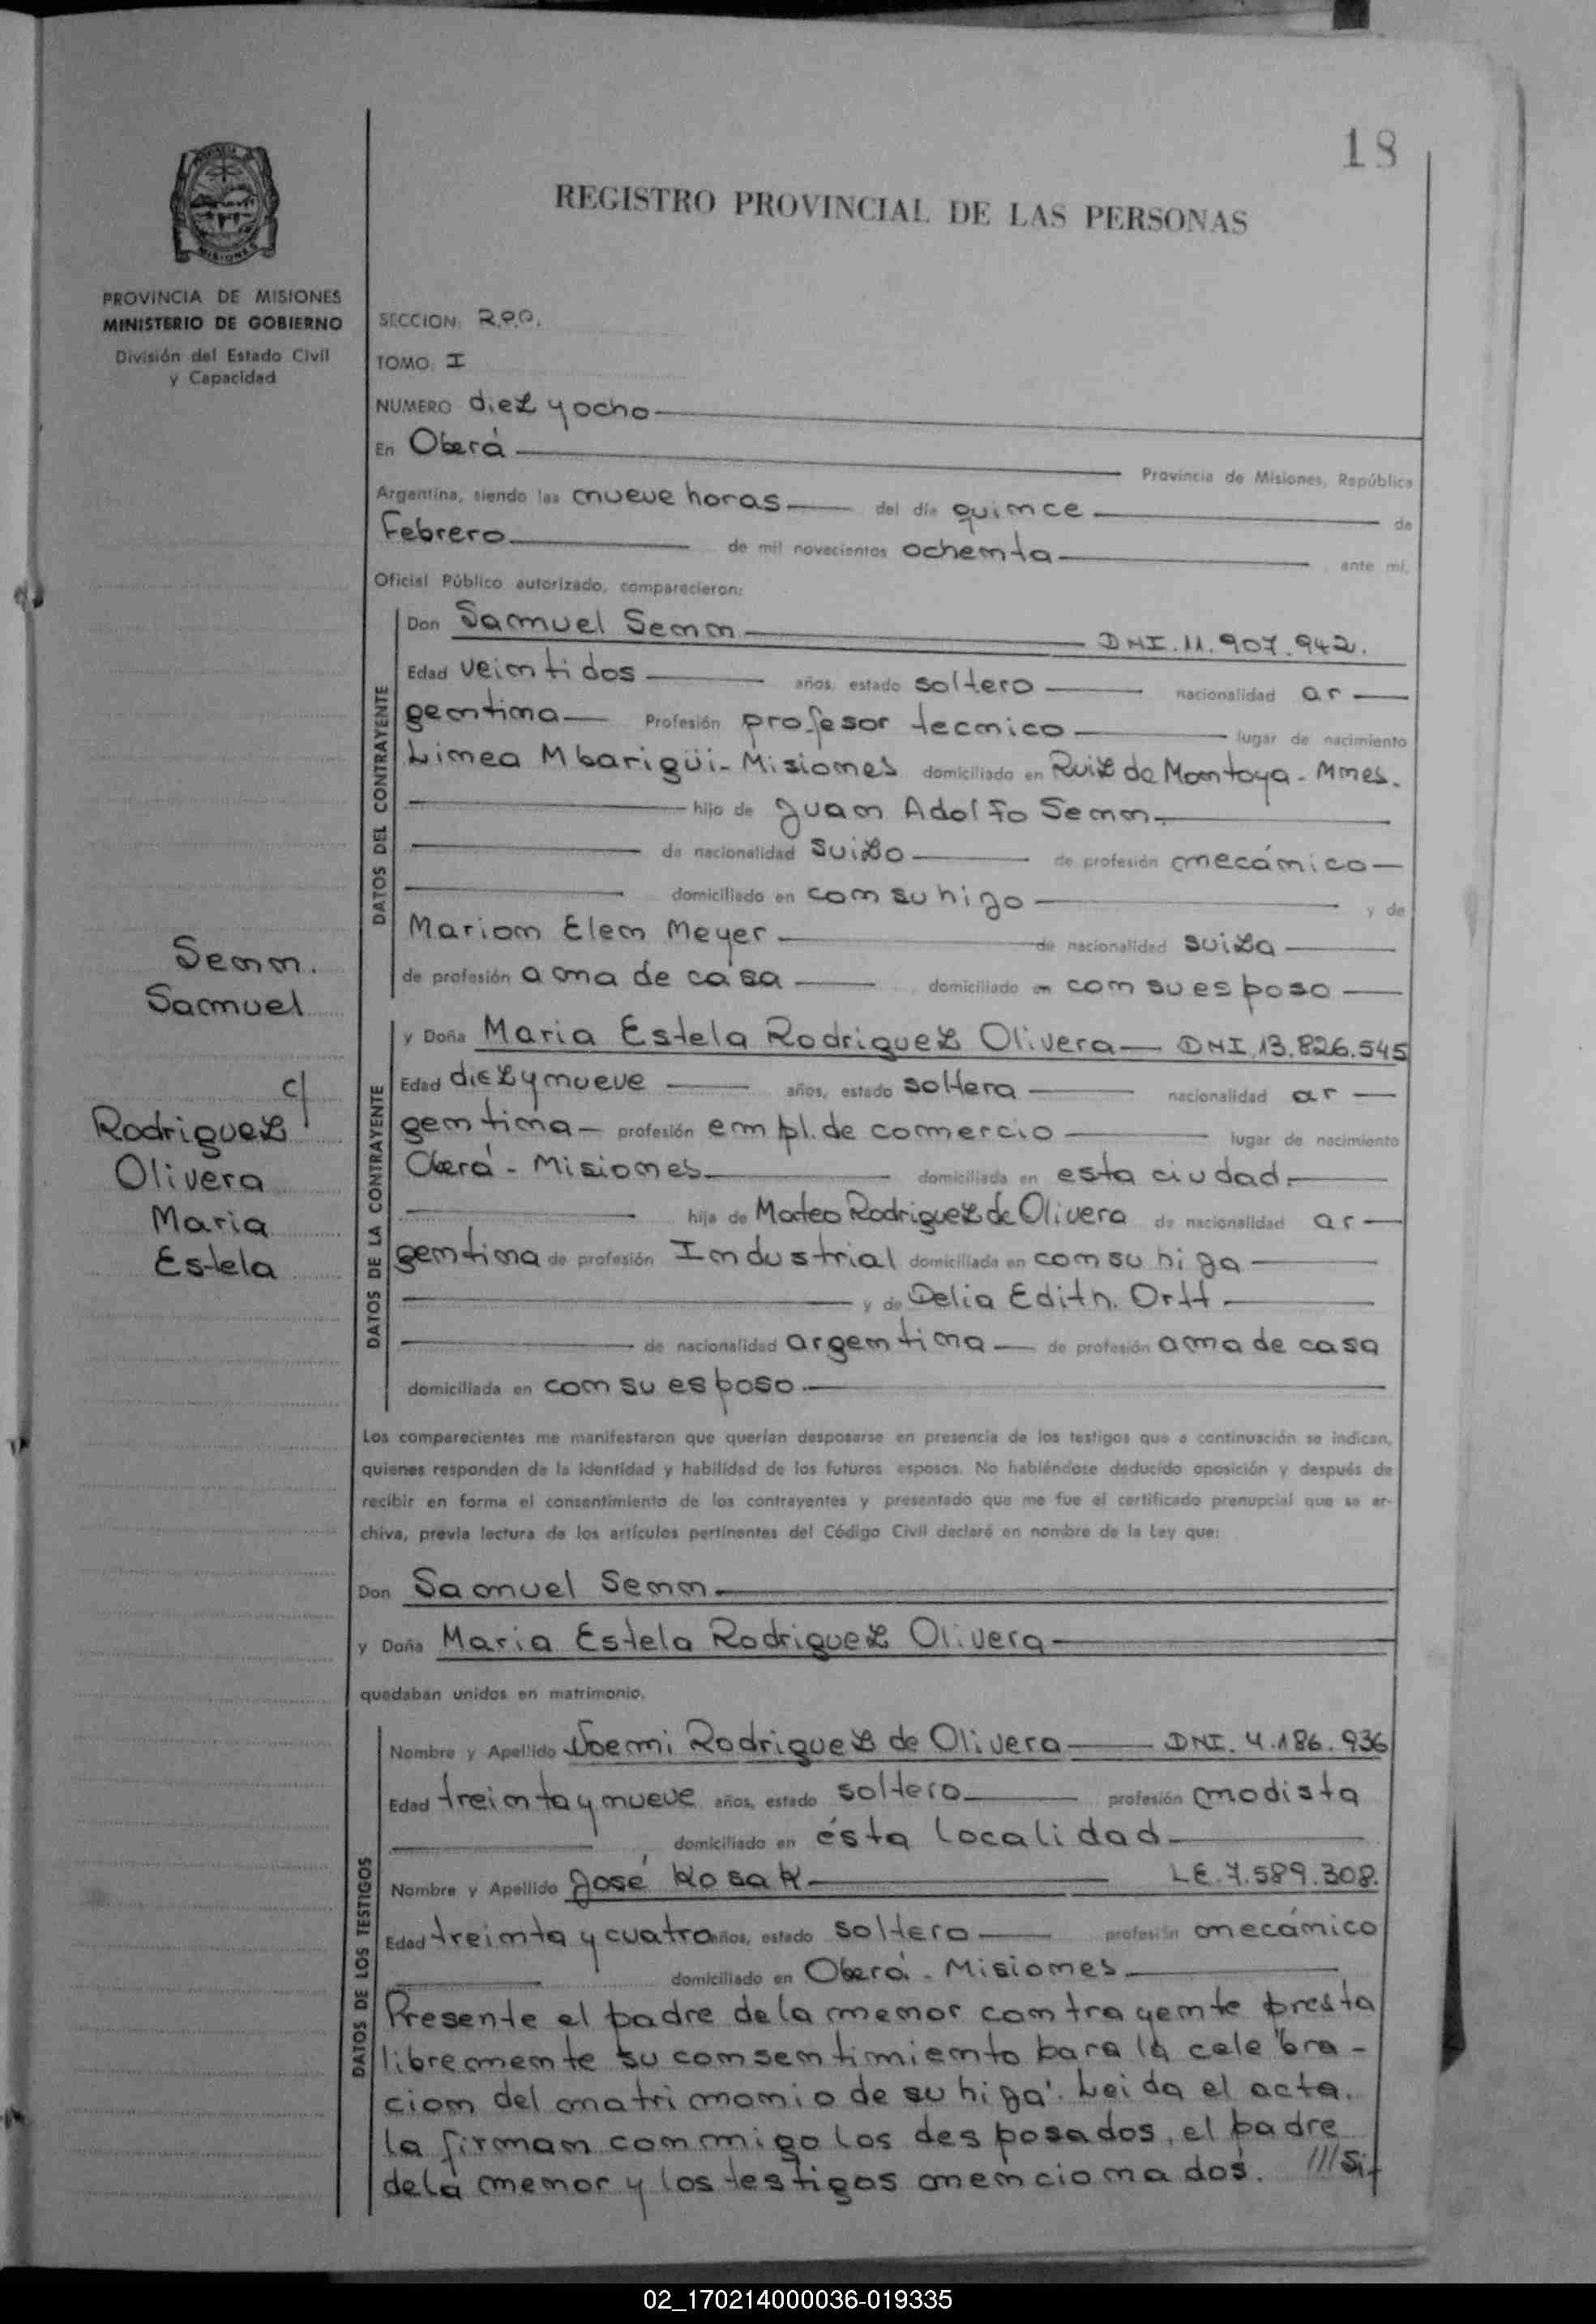 18
REGISTRO PROVINCIAL DE LAS PERSONAS
PROVINCIA DE MISIONES
MINISTERIO DE GOBIERNO
División del Estado Civil
y Capacidad
SECCION: R.P.P.
TOMO: I
NUMERO diez y ocho
En Oberá Provincia de Misiones, República
Argentina, siendo las nueve horas del día quince de
Febrero de mil novecientos ochenta ante mí,
Oficial Público autorizado, comparecieron:
DATOS DEL CONTRAYENTE
Don Samuel Senn DNI. 11.907.942.
Edad veintidos años, estado soltero nacionalidad ar
gentina Profesión profesor tecnico lugar de nacimiento
Linea Mbarigüi - Misiones domiciliado en Ruiz de Montoya - Mnes.
hijo de Juan Adolfo Senn.
de nacionalidad suizo de profesión mecánico
domiciliado en con su hijo y de
Marion Elen Meyer de nacionalidad suiza
de profesión ama de casa domiciliado en con su esposo
Senn.
Samuel
c/
Rodriguez
Olivera
Maria
Estela
DATOS DE LA CONTRAYENTE
y Doña Maria Estela Rodriguez Olivera DNI 13.826.545
Edad diez y nueve años, estado soltera nacionalidad ar
gentina profesión empl. de comercio lugar de nacimiento
Oberá - Misiones domiciliada en esta ciudad.
hija de Mateo Rodriguez de Olivera de nacionalidad ar
gentina de profesión Industrial domiciliada en con su hija
y de Delia Edith. Ortt
de nacionalidad argentina de profesión ama de casa
domiciliada en con su esposo.
Los comparecientes me manifestaron que querían desposarse en presencia de los testigos que a continuación se indican,
quienes responden de la identidad y habilidad de los futuros esposos. No habiéndose deducido oposición y después de
recibir en forma el consentimiento de los contrayentes y presentado que me fue el certificado prenupcial que se ar-
chiva, previa lectura de los artículos pertinentes del Código Civil declaré en nombre de la Ley que:
Don Samuel Senn.
y Doña Maria Estela Rodriguez Olivera
quedaban unidos en matrimonio.
DATOS DE LOS TESTIGOS
Nombre y Apellido Noemi Rodriguez de Olivera DNI. 4.186.936
Edad treinta y nueve años, estado soltero profesión modista
domiciliado en ésta localidad
Nombre y Apellido José Kosak LE. 7.589.308.
Edad treinta y cuatro años, estado soltero profesión mecánico
domiciliado en Oberá - Misiones
Presente el padre de la menor contrayente presta
libremente su consentimiento para la celebra-
cion del matrimonio de su hija. Leida el acta.
la firman conmigo los desposados, el padre
de la menor y los testigos mencionados. ///Si-
02_170214000036-019335